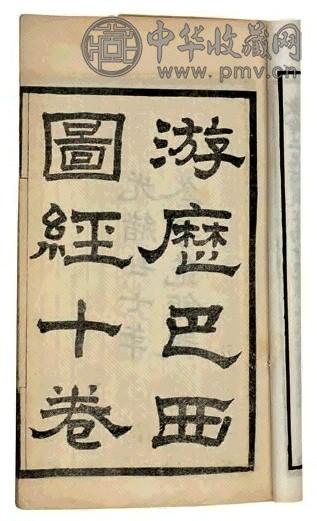 中华收藏网
www.pmv.cn
游歷巴西
圖經十卷